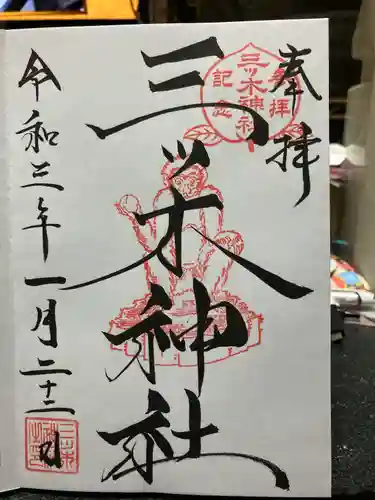 奉拝
三ッ木神社
参拝
三ッ木神社
記念
令和三年一月二十二日